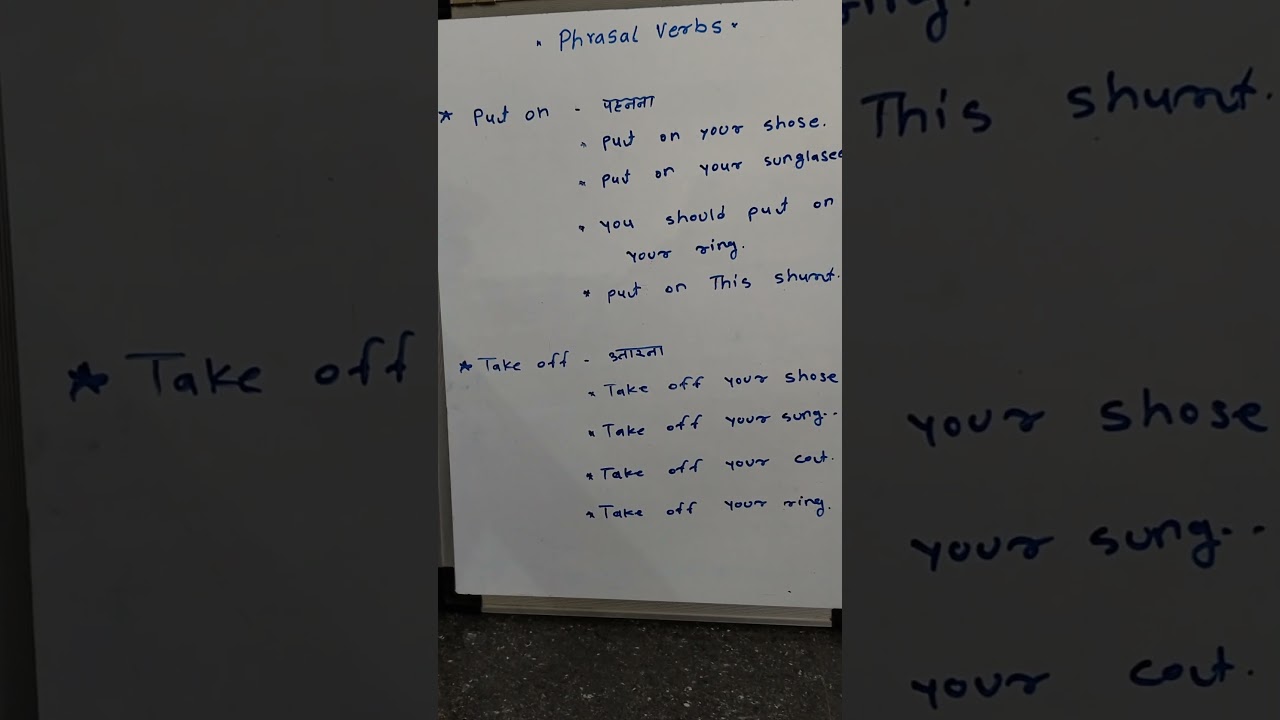 * Phrasal Verbs *
* Put on - पहनना
* put on your shose.
* put on your sunglasee
* you should put on
your ring.
* put on This shurt.
* Take off - उतारना
* Take off your shose
* Take off your sung..
* Take off your cout.
* Take off your ring.